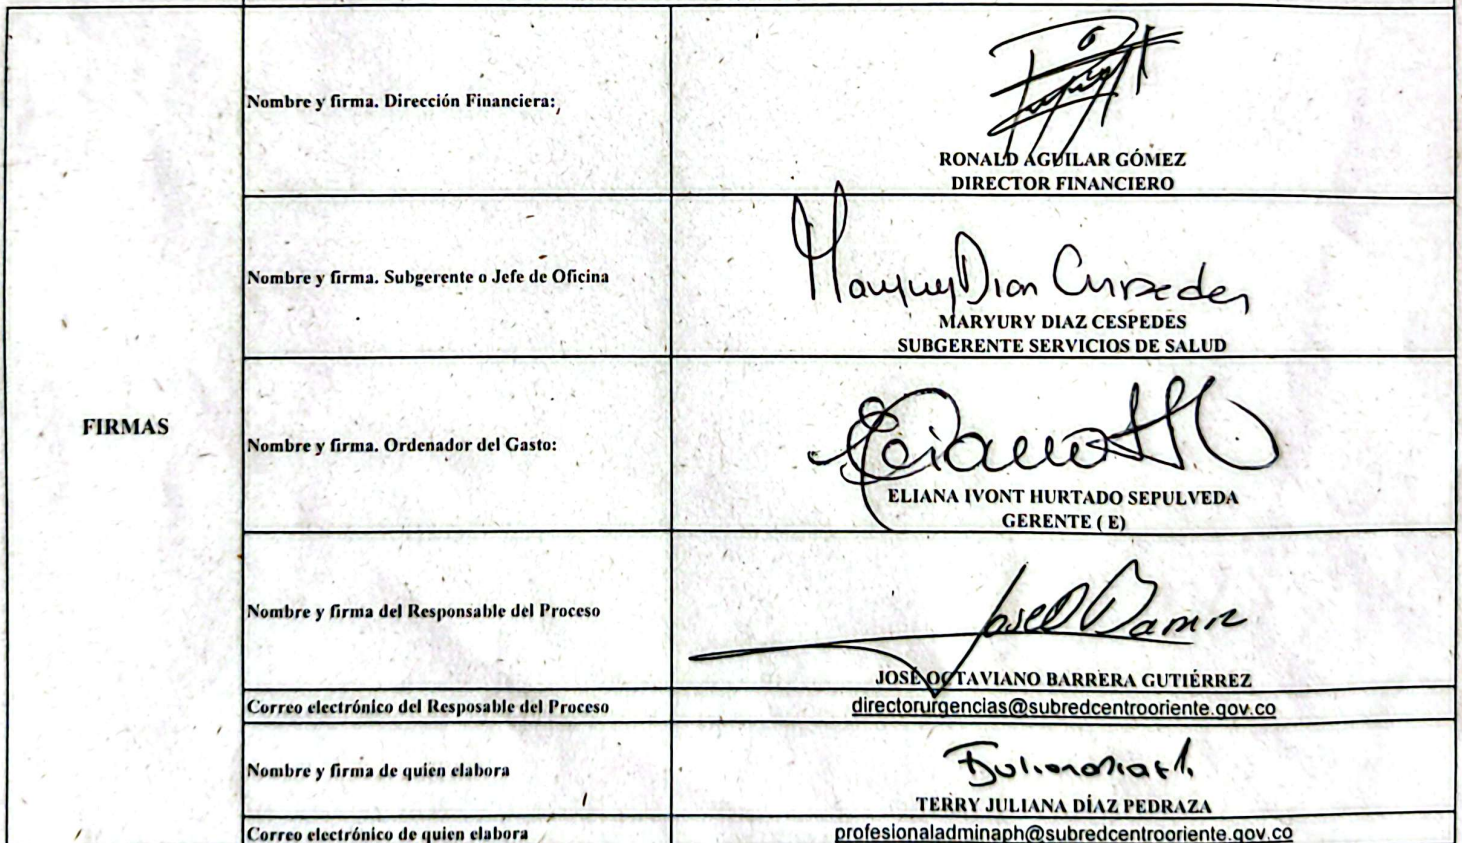 Nombre y firma. Dirección Financiera:
RONALD AGUILAR GÓMEZ
DIRECTOR FINANCIERO
Nombre y firma. Subgerente o Jefe de Oficina
Maryury Diaz Cespedes
MARYURY DIAZ CESPEDES
SUBGERENTE SERVICIOS DE SALUD
FIRMAS
Nombre y firma. Ordenador del Gasto:
ELIANA IVONT HURTADO SEPULVEDA
GERENTE ( E)
Nombre y firma del Responsable del Proceso
JOSÉ OCTAVIANO BARRERA GUTIÉRREZ
Correo electrónico del Resposable del Proceso
directorurgencias@subredcentrooriente.gov.co
Nombre y firma de quien elabora
TERRY JULIANA DÍAZ PEDRAZA
Correo electrónico de quien elabora
profesionaladminaph@subredcentrooriente.gov.co